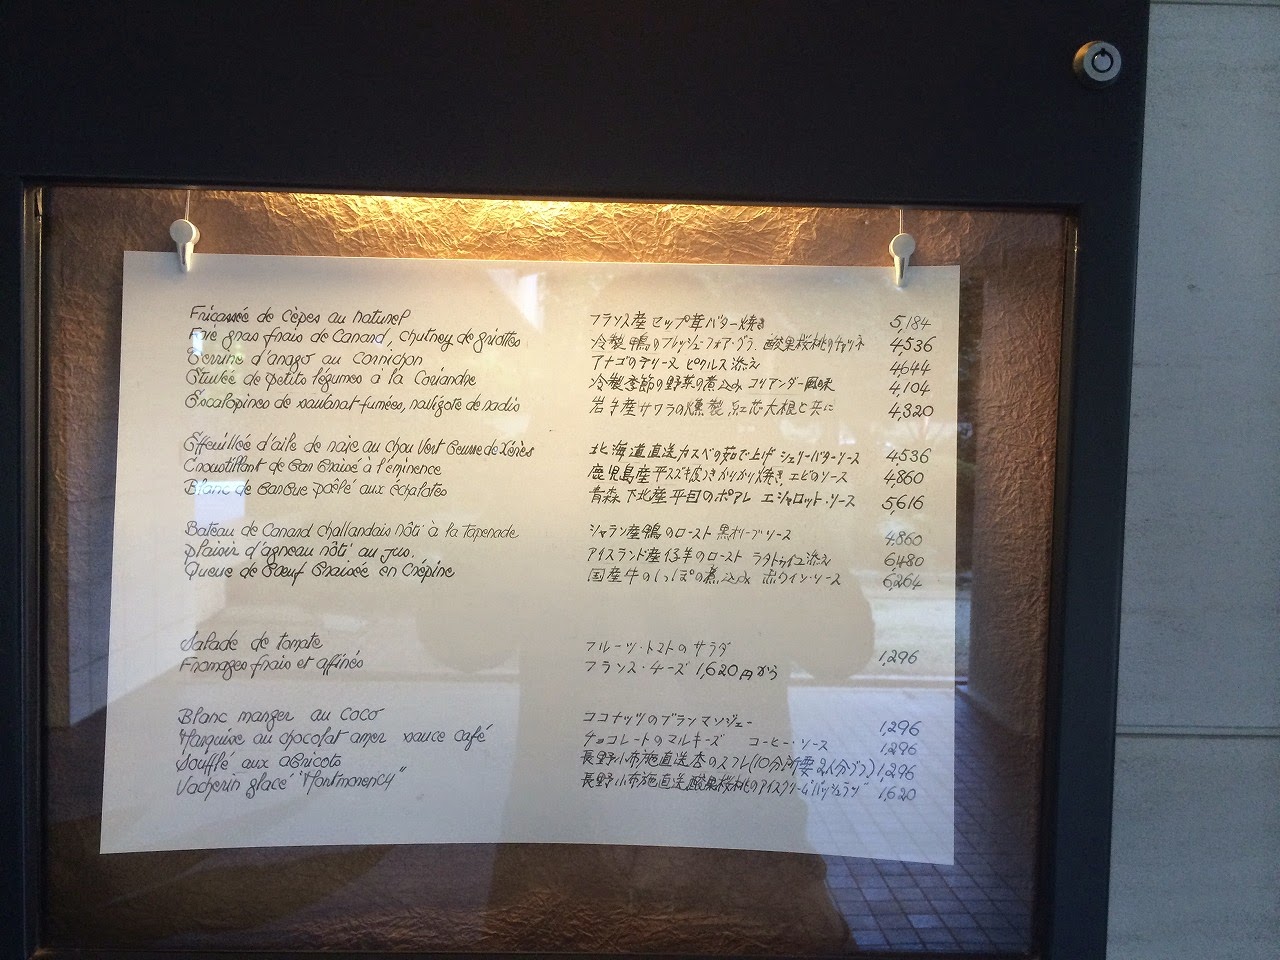 Fricassée de Cèpes au naturel フランス産セップ茸バター焼き 5,184
Foie gras frais de Canard, chutney de griottes 冷製鴨のフレッシュ・フォア・グラ 酸果桜桃のチャツネ 4,536
Terrine d'anago au Cornichon アナゴのテリーヌ ピクルス添え 4,644
Etuvée de petits légumes à la Coriandre 冷製季節の野菜の煮込み コリアンダー風味 4,104
Escalopines de saularat fumées, ravigote de radis 岩手産サワラの燻製、紅芯大根と共に 4,320
Effeuillée d'aile de raie au chou Vert Beurre de Xérès 北海道直送カスベの茹で上げ シェリーバターソース 4,536
Croustillant de Bar Braisé à l'éminence 鹿児島産平スズキ皮つきかりかり焼き、エビのソース 4,860
Blanc de Barbue poêlé aux échalotes 青森下北産平目のポアレ エシャロット・ソース 5,616
Bateau de Canard challandais rôti à la tapenade シャラン産鴨のロースト 黒オリーブ・ソース 4,860
Plaisir d'agneau rôti au jus. アイスランド産仔羊のロースト ラタトゥイユ添え 6,480
Queue de Boeuf Braisée en Crépine 国産牛のしっぽの煮込み 赤ワイン・ソース 6,264
Salade de tomate フルーツ・トマトのサラダ 1,296
Fromages frais et affinés フランス・チーズ 1,620円から
Blanc manger au coco ココナッツのブランマンジェー 1,296
Marquise au chocolat amer sauce café チョコレートのマルキーズ コーヒー・ソース 1,296
Soufflé aux abricots 長野小布施直送杏のスフレ(10分所要 2人分ヅツ) 1,296
Vacherin glacé "Montmorency" 長野小布施直送酸果桜桃のアイスクリーム"バッシュラン" 1,620